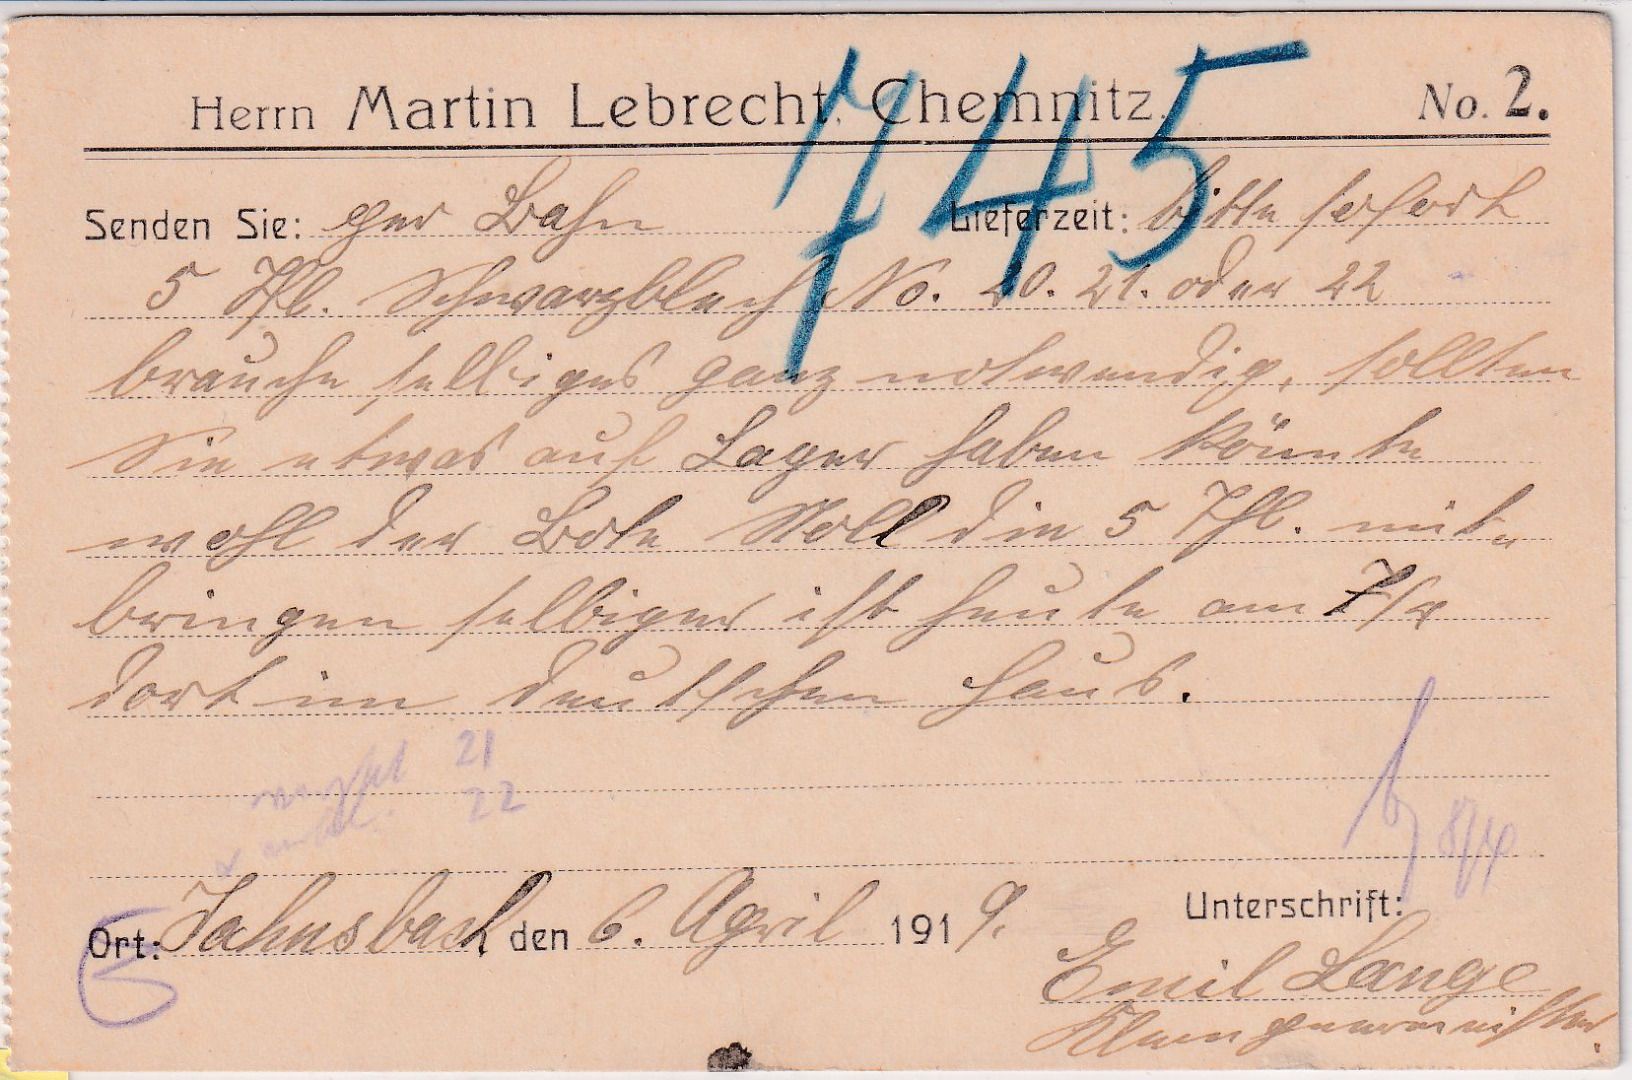 Herrn Martin Lebrecht, Chemnitz.
No. 2.
745
Senden Sie: per Bahn
Lieferzeit: bitte sofort
5 Tfl. Schwarzblech No. 20. 21. oder 22
brauche selbiges ganz notwendig, sollten
Sie etwas auf Lager haben könnte
wohl der Bote Noll die 5 Tfl. mit-
bringen selbiger ist heute am 7/4
dort im deutschen Haus.
21
22
8/4
Ort: Jahnsbach den 6. April 1919.
Unterschrift:
Emil Lange
Klempnermeister.